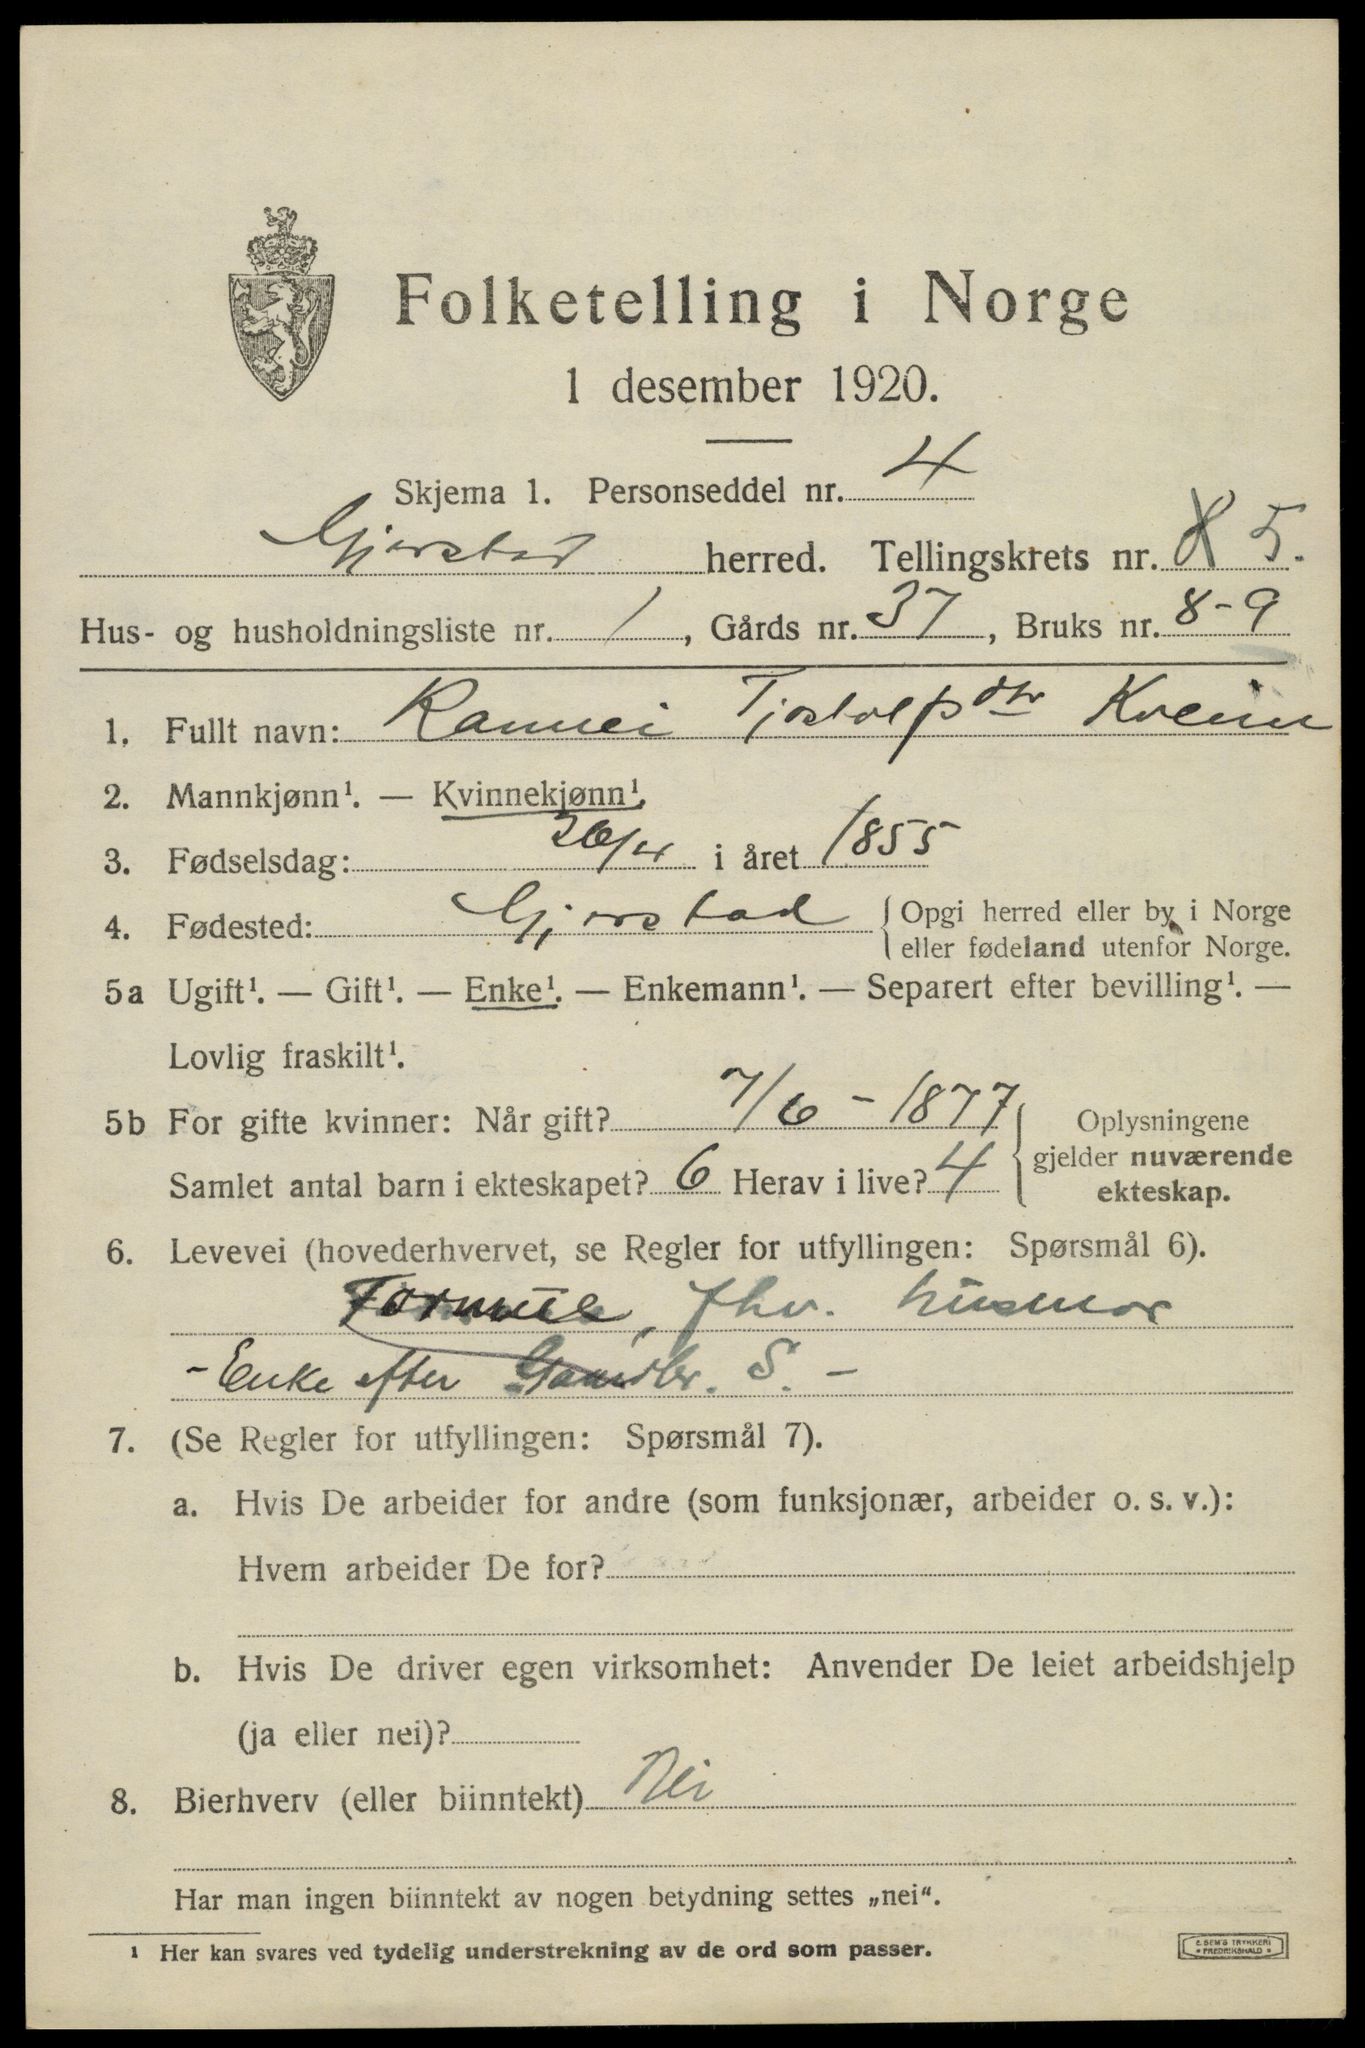 Folketelling i Norge
1 desember 1920.
Skjema 1. Personseddel nr. 4
Gjerstad herred. Tellingskrets nr. 8 5.
Hus- og husholdningsliste nr. 1, Gårds nr. 37, Bruks nr. 8-9
1. Fullt navn: Rannei Tjostolfsdtr Kveim
2. Mannkjønn¹. — Kvinnekjønn¹.
3. Fødselsdag: 26/4 i året 1855
4. Fødested: Gjerstad { Opgi herred eller by i Norge
eller fødeland utenfor Norge.
5a Ugift¹. — Gift¹. — Enke¹. — Enkemann¹. — Separert efter bevilling¹. —
Lovlig fraskilt¹.
5b For gifte kvinner: Når gift? 7/6 - 1877
Samlet antal barn i ekteskapet? 6 Herav i live? 4
{ Oplysningene
gjelder nuværende
ekteskap.
6. Levevei (hovederhvervet, se Regler for utfyllingen: Spørsmål 6).
fhv. husmor
- Enke efter Gaardbr. S. -
7. (Se Regler for utfyllingen: Spørsmål 7).
a. Hvis De arbeider for andre (som funksjonær, arbeider o. s. v.):
Hvem arbeider De for?
b. Hvis De driver egen virksomhet: Anvender De leiet arbeidshjelp
(ja eller nei)?
8. Bierhverv (eller biinntekt) Nei
Har man ingen biinntekt av nogen betydning settes „nei“.
¹ Her kan svares ved tydelig understrekning av de ord som passer.
E. SEM'S TRYKKERI
* FREDRIKSHALD *